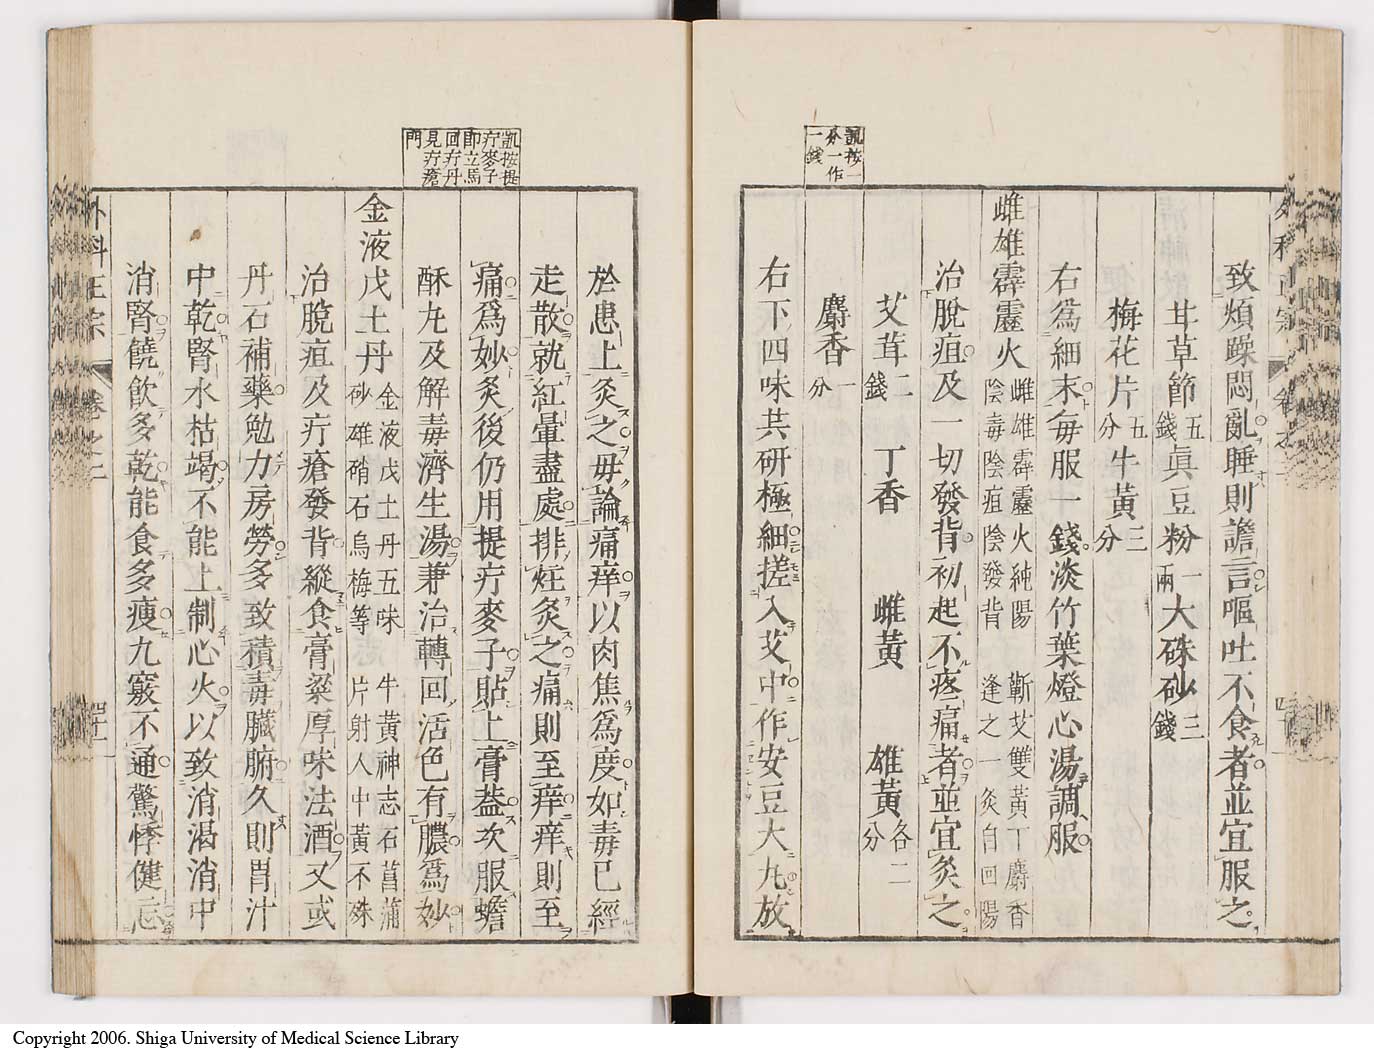 致煩躁悶亂睡則譫言嘔吐不食者並宜服之
甘草節五錢 眞豆粉一兩 大硃砂三錢
梅花片五分 牛黃三分
右為細末毎服一錢淡竹葉燈心湯調服
雌雄霹靂火 雌雄霹靂火純陽 蘄艾雙黃丁麝香
陰毒陰疽陰發背 逢之一灸自回陽
治脫疽及一切發背初起不疼痛者並宜灸之
艾茸二錢 丁香 雌黃 雄黃各二分
麝香一分
凱按一分一作一錢
右下四味共研極細搓入艾中作安豆大丸放
於患上灸之毋論痛痒以肉焦為度如毒已經
走散就紅暈盡處排炷灸之痛則至痒痒則至
痛為妙灸後仍用提疔麥子貼上膏葢次服蟾
凱按提疔麥子即立馬回疔丹見疔瘡門
酥丸及解毒濟生湯兼治轉回活色有膿為妙
金液戊土丹 金液戊土丹五味 牛黃神志石菖蒲
砂雄硝石烏梅等 片射人中黃不殊
治脫疽及疔瘡發背縱食膏粱厚味法酒又或
丹石補藥勉力房勞多致積毒臟腑久則胃汁
中乾腎水枯竭不能上制心火以致消渴消中
消腎饒飲多乾能食多瘦九竅不通驚悸健忘
外科正宗 卷之二 四十一